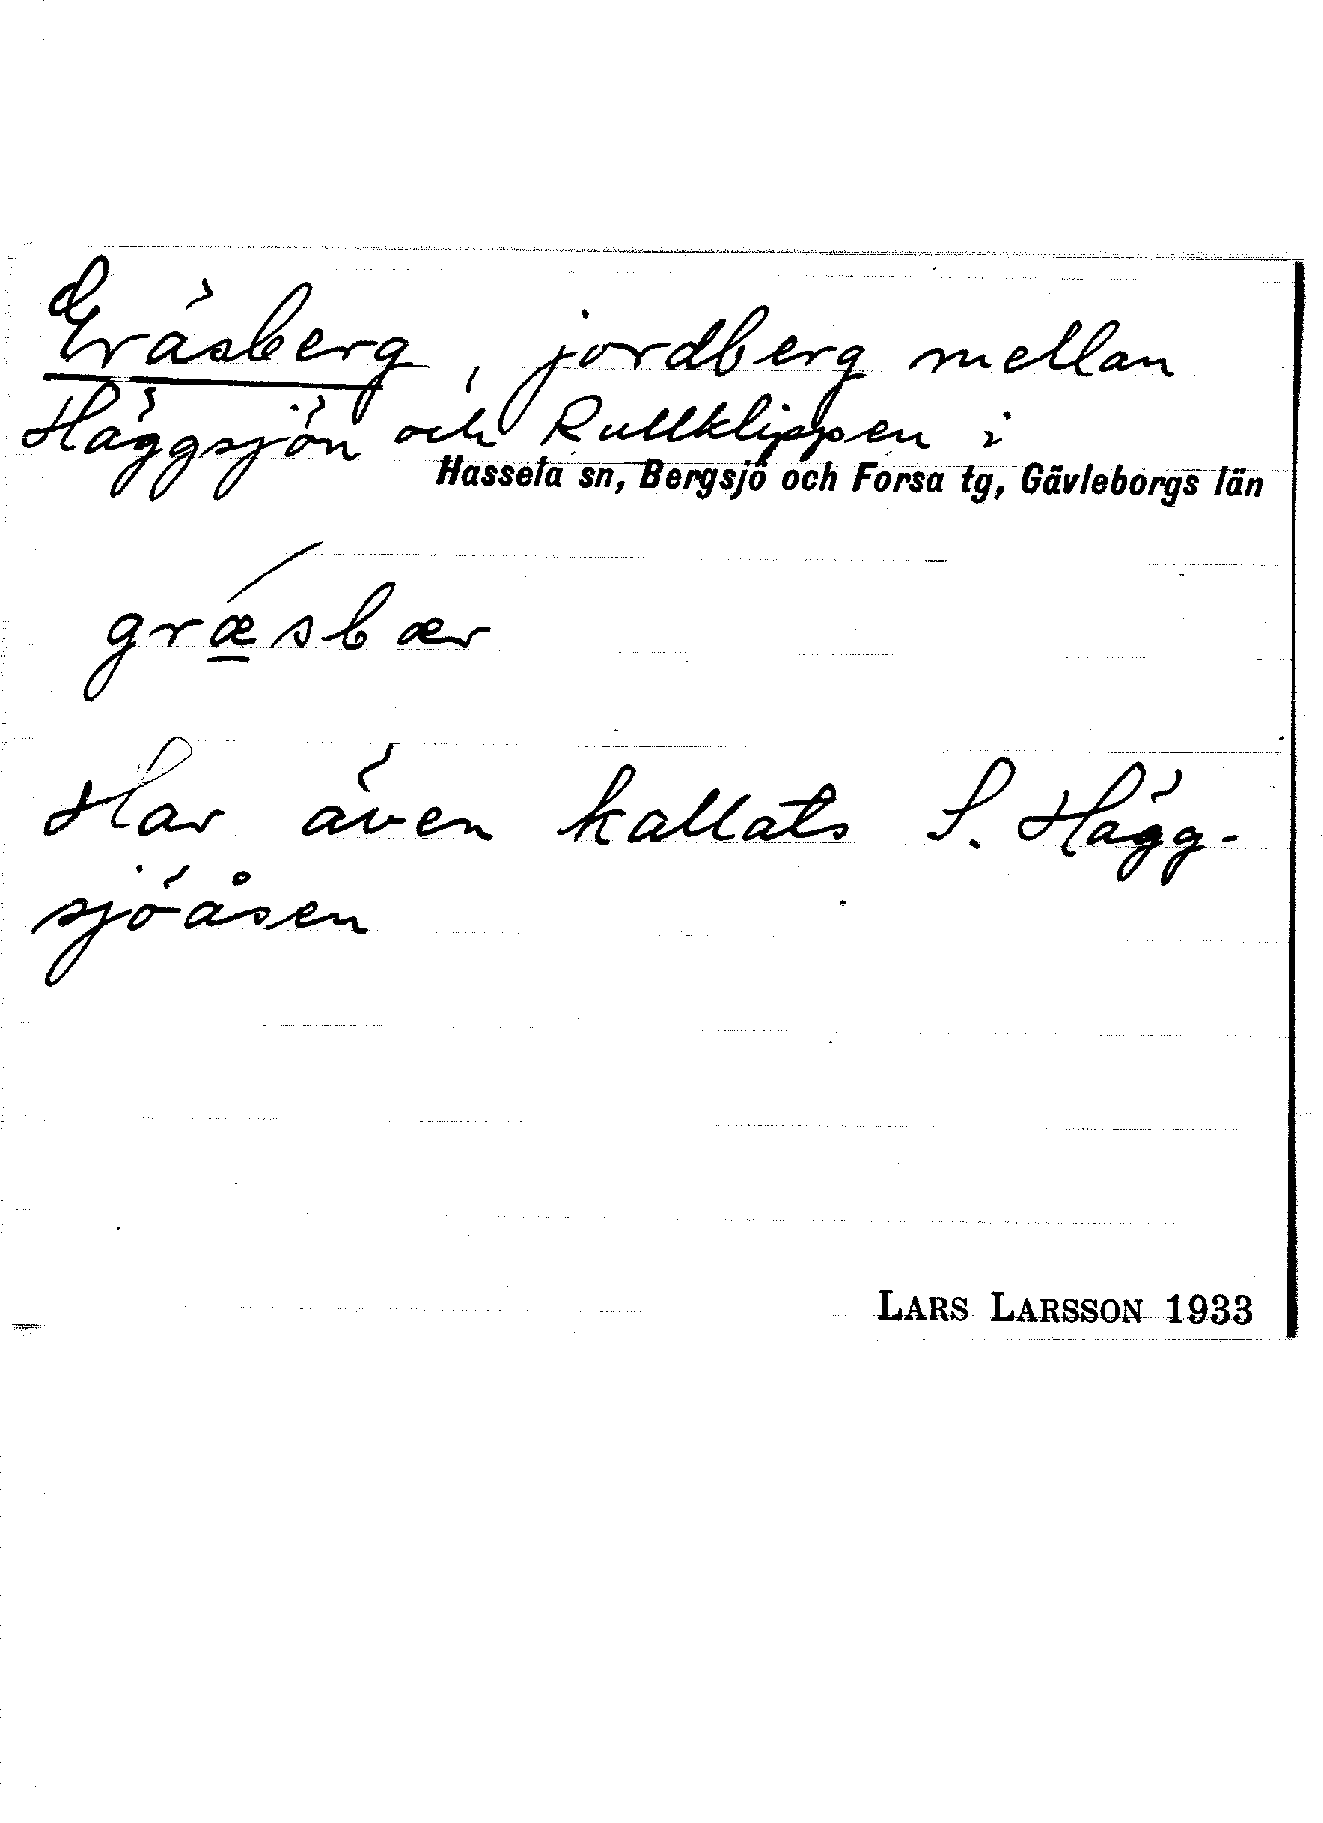 Gräsberg, jordberg mellan
Häggsjön och Rullklippen i
Hassela sn, Bergsjö och Forsa tg, Gävleborgs län
græsbær
Har även kallats S. Hägg-
sjöåsen
LARS LARSSON 1933